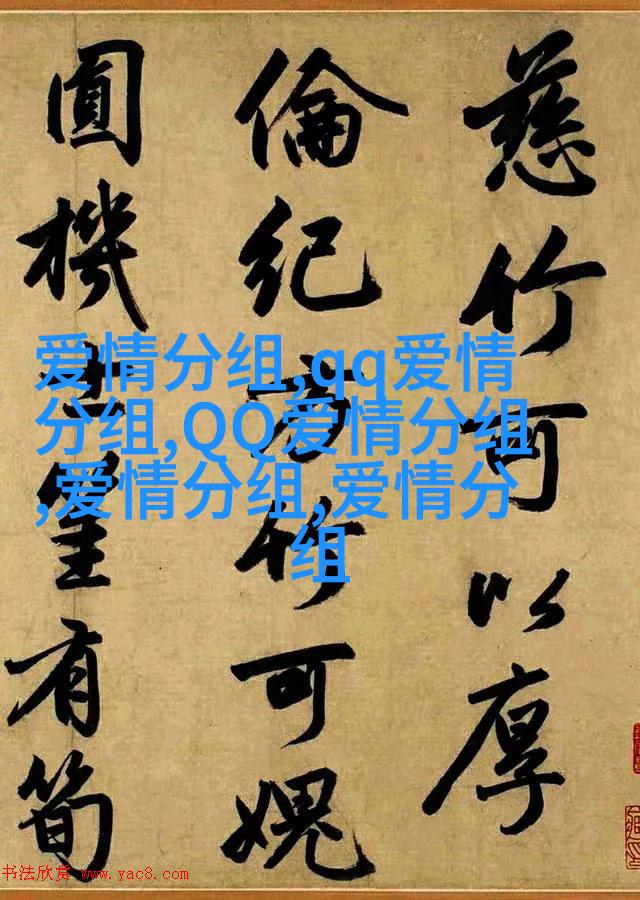 慈竹可以厚
倫紀方竹可媿
圓機有筍
爱情分组,qq爱情
分组,QQ爱情分组
,爱情分组,爱情分
组
书法欣赏 www.yac8.com